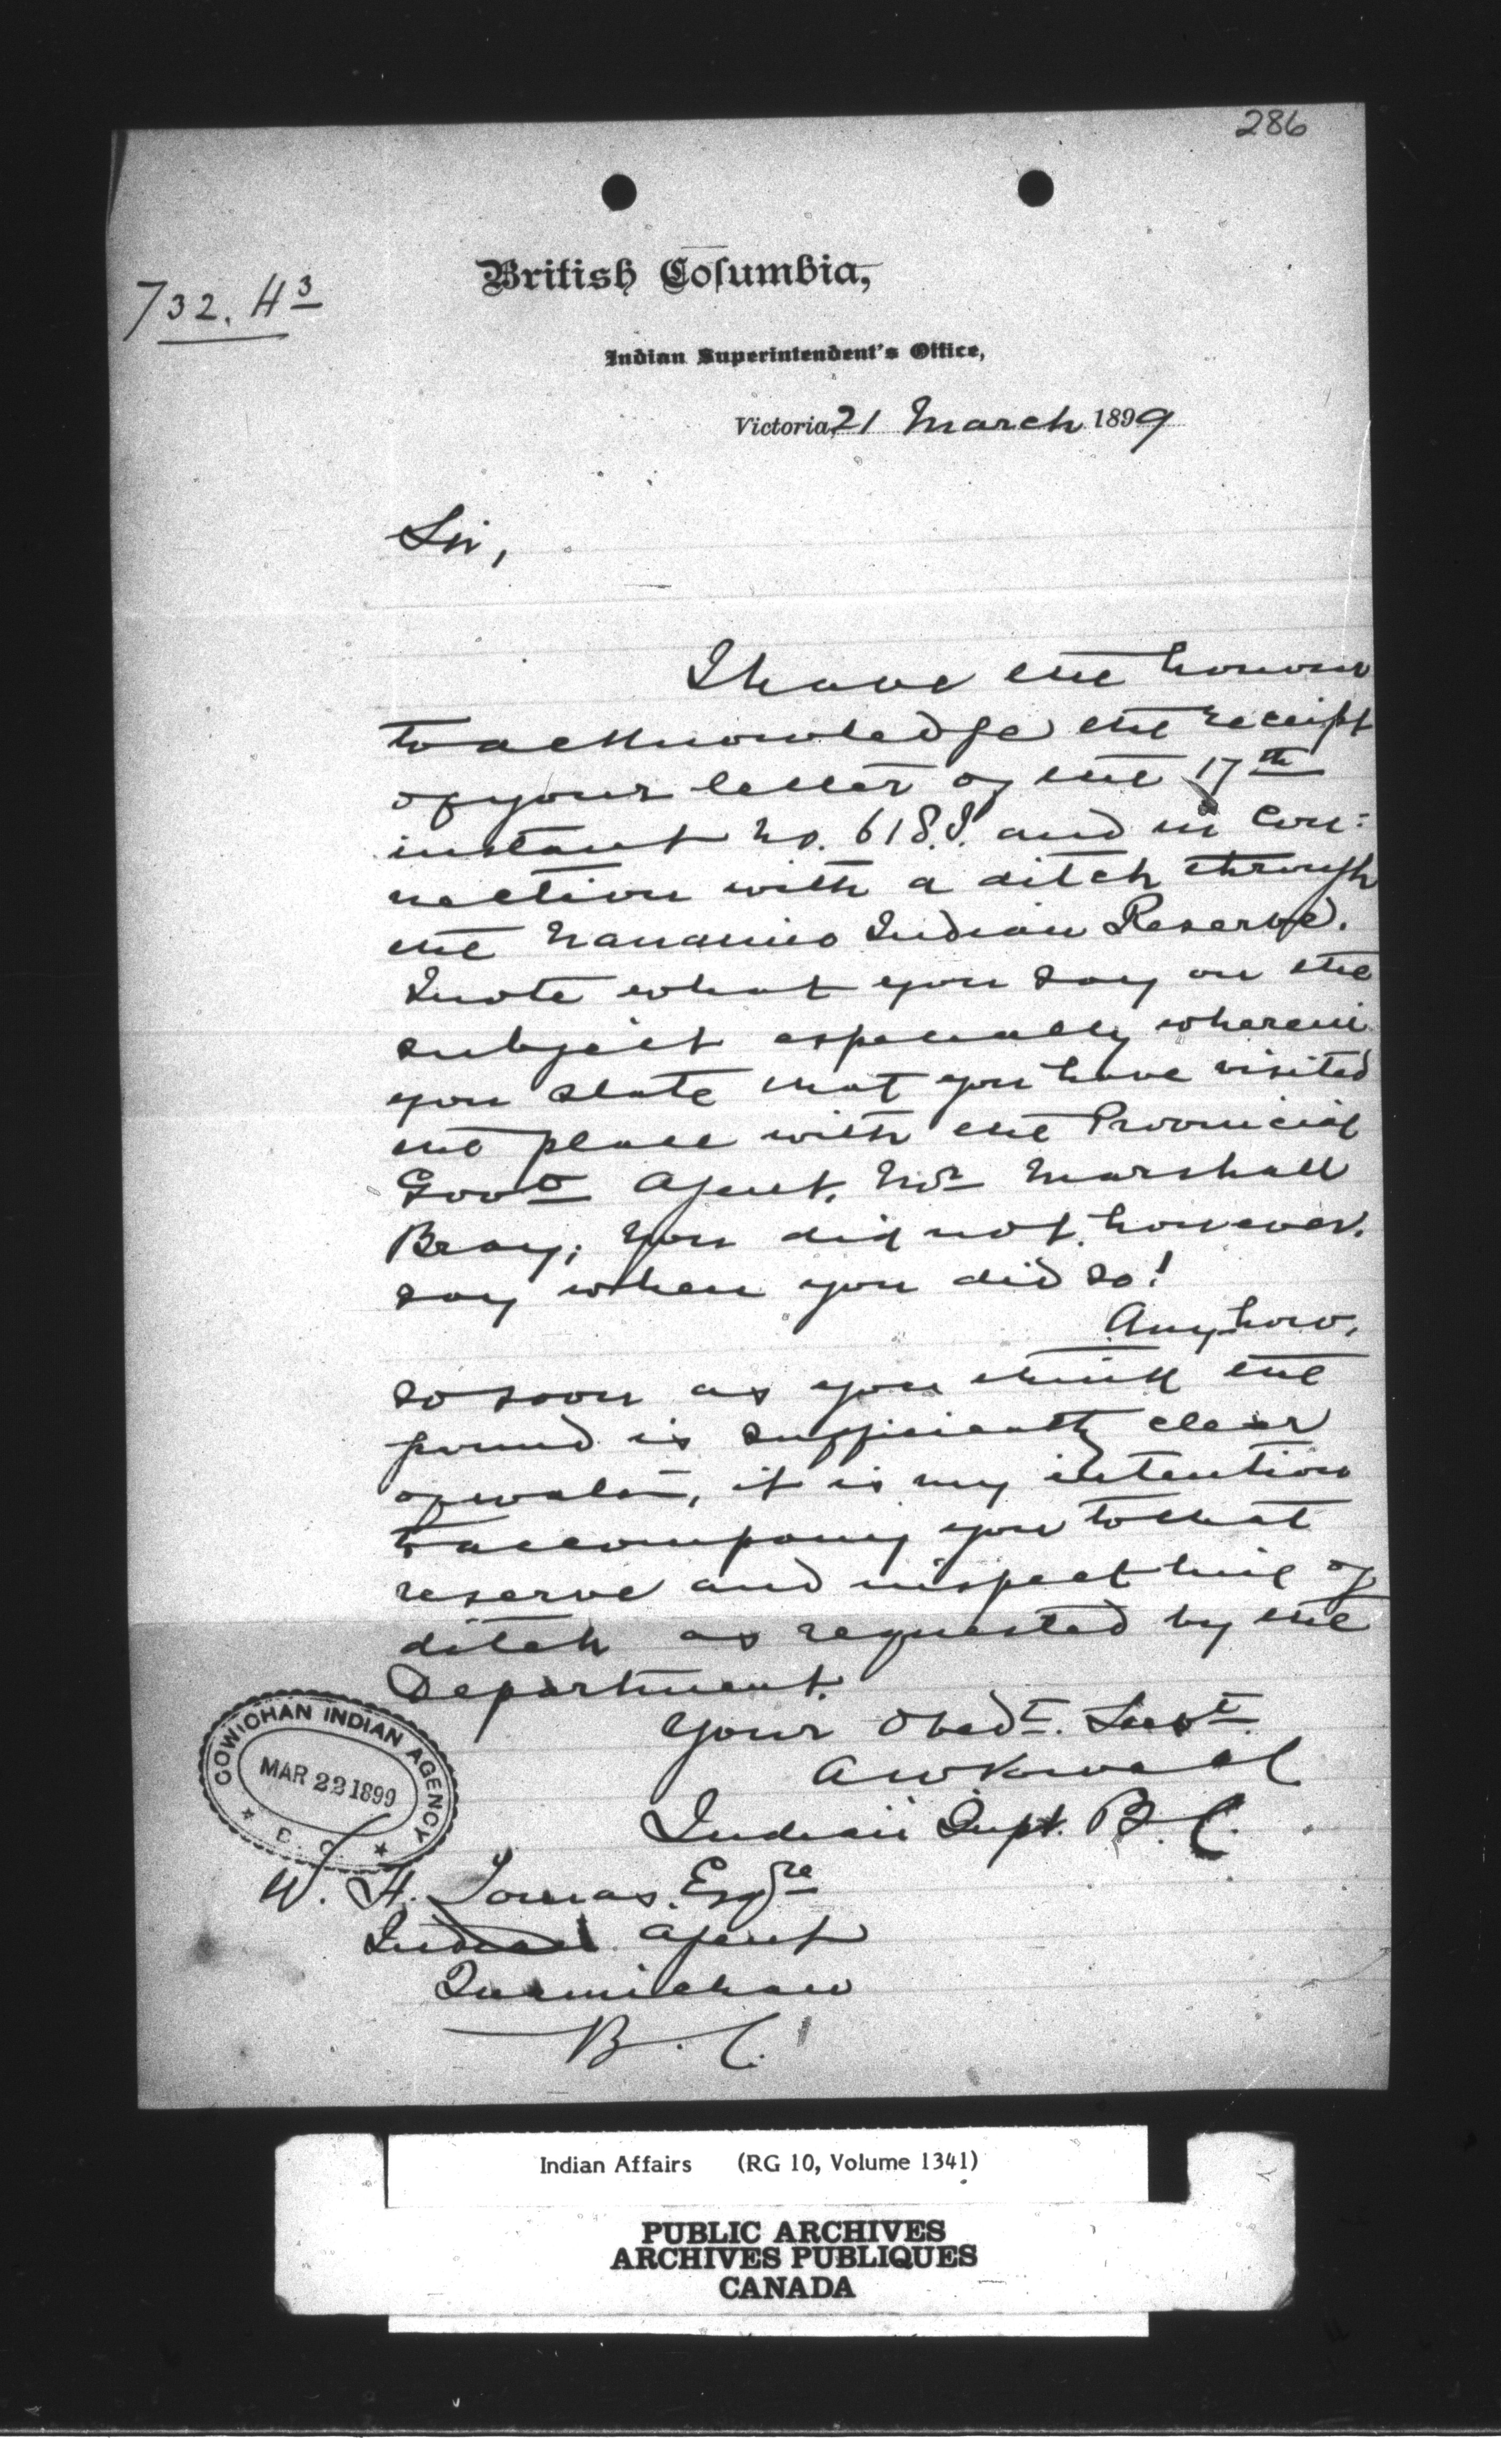 286
732. H3
British Columbia,
Indian Superintendent's Office,
Victoria, 21 March 1899
Sir,
I have the honour
to acknowledge the receipt
of your letter of the 17th
instant No. 618. I. and in con=
nection with a ditch through
the Nanaimo Indian Reserve.
I note what you say on the
subject especially wherein
you state that you have visited
the place with the Provincial
Govt Agent, Mr Marshall
Bray; You did not, however,
say when you did so!
Anyhow,
so soon as you think the
ground is sufficiently clear
of water, it is my intention
to accompany you to that
reserve and inspect line of
ditch as requested by the
Department.
Your Obedt. Servt.
A W Vowell
Indian Supt. B.C.
COWICHAN INDIAN AGENCY
MAR 22 1899
B. C.
W. H. Lomas, Esqre
Indian Agent
Quamichan
B. C.
Indian Affairs (RG 10, Volume 1341)
PUBLIC ARCHIVES
ARCHIVES PUBLIQUES
CANADA